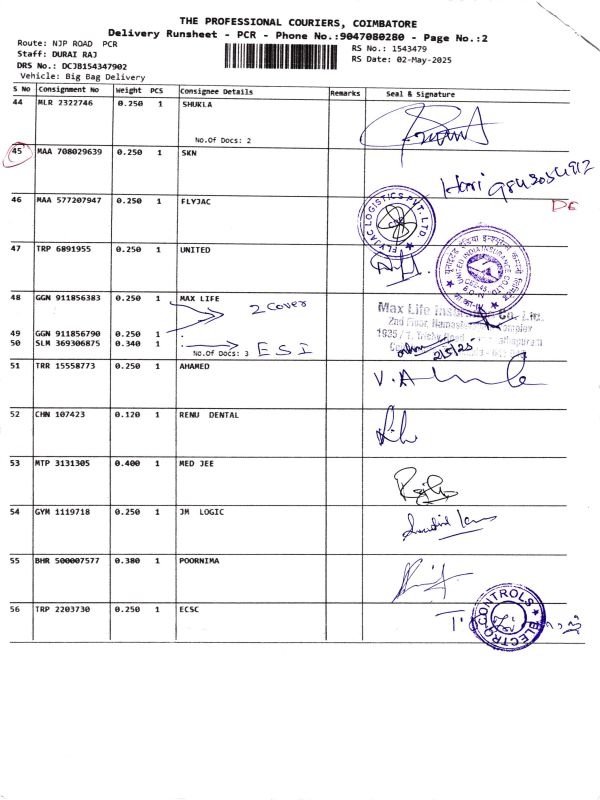 THE PROFESSIONAL COURIERS, COIMBATORE
Delivery Runsheet - PCR - Phone No.:9047080280 - Page No.:2
Route: NJP ROAD PCR
RS No.: 1543479
Staff: DURAI RAJ
RS Date: 02-May-2025
DRS No.: DCJB154347902
Vehicle: Big Bag Delivery
S No Consignment No Weight PCS Consignee Details Remarks Seal & Signature
44 MLR 2322746 0.250 1 SHUKLA
No.Of Docs: 2
45 MAA 708029639 0.250 1 SKN
Hari 9843054912
46 MAA 577207947 0.250 1 FLYJAC
FLYJAC LOGISTICS PVT. LTD.
47 TRP 6891955 0.250 1 UNITED
UNITED INDIA INSURANCE CO. LTD.
48 GGN 911856383 0.250 1 MAX LIFE
2 Cover
Max Life Insurance Co. Ltd.
2nd Floor,
49 GGN 911856790 0.250 1
50 SLM 369306875 0.340 1
No.Of Docs: 3
ESI
2/5/25
51 TRR 15558773 0.250 1 AHAMED
52 CHN 107423 0.120 1 RENU DENTAL
53 MTP 3131305 0.400 1 MED JEE
54 GYM 1119718 0.250 1 JM LOGIC
55 BHR 500007577 0.380 1 POORNIMA
56 TRP 2203730 0.250 1 ECSC
ELECTRO CONTROLS